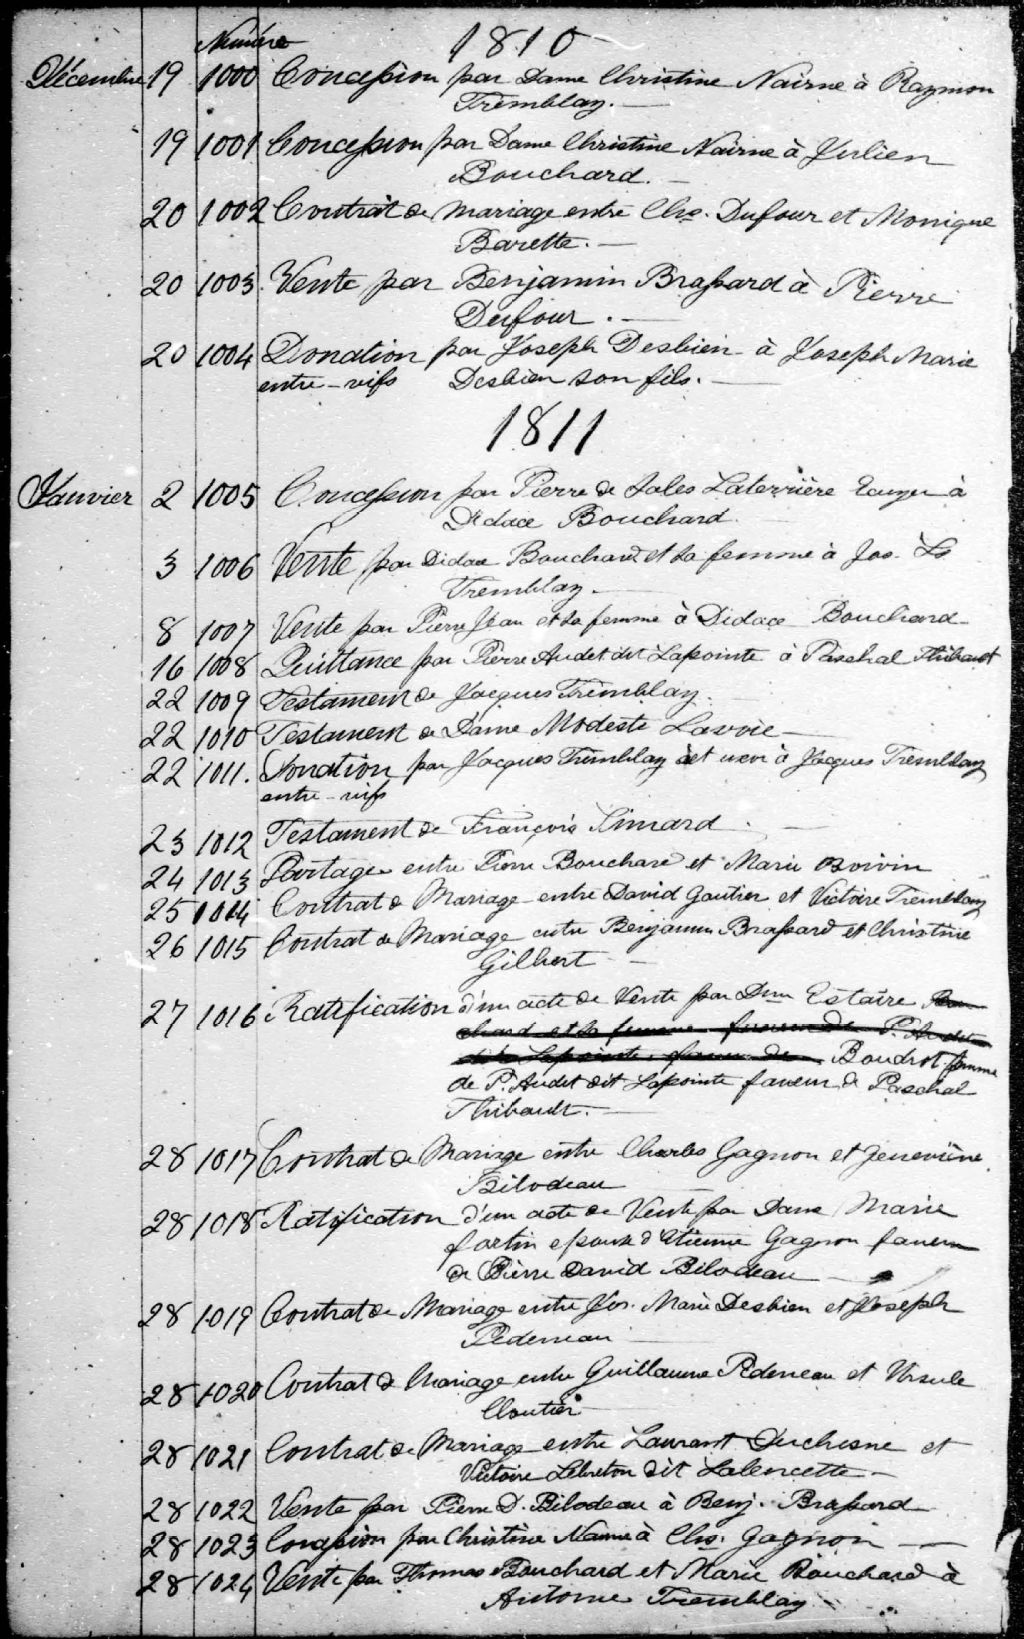 Numéro 1810
Décembre 19 1000 Concession par Dame Christine Nairne à Raymon
Tremblay. —
19 1001 Concession par Dame Christine Nairne à Julien
Bouchard. —
20 1002 Contrat de mariage entre Chs. Dufour et Monique
Barette. —
20 1003. Vente par Benjamin Brassard à Pierre
Dufour. —
20 1004 Donation par Joseph Desbien à Joseph Marie
entre-vifs Desbien son fils. —
1811
Janvier 2 1005 Concession par Pierre de Sales Laterrière Ecuyer à
Didace Bouchard
3 1006 Vente par Didace Bouchard et sa femme à Jos. Ls
Tremblay. —
8 1007 Vente par Pierre Jean et sa femme à Didace Bouchard
16 1008 Quittance par Pierre Audet dit Lapointe à Paschal Thibault
22 1009 Testament de Jacques Tremblay.
22 1010 Testament de Dame Modeste Lavoie —
22 1011. Donation par Jacques Tremblay et uxor à Jacques Tremblay
entre-vifs
23 1012 Testament de François Simard. —
24 1013 Partage entre Pierre Bouchard et Marie Boivin
25 1014 Contrat de Mariage entre David Gautier et Victoire Tremblay
26 1015 Contrat de Mariage entre Benjamin Brassard et Christine
Gilbert —
27 1016 Ratification d'un acte de Vente par Estaire Bou
chard et sa femme faveur de P. Audet
dit Lapointe, faveur de Boudrot femme
de P. Audet dit Lapointe faveur de Paschal
Thibault. —
28 1017 Contrat de Mariage entre Charles Gagnon et Geneviève
Bilodeau —
28 1018 Ratification d'un acte de Vente par Dame Marie
fortin epouse d'Etienne Gagnon faveur
de Pierre David Bilodeau —
28 1019 Contrat de Mariage entre Jos. Marie Desbien et Joseph
Pedeneau —
28 1020 Contrat de Mariage entre Guillaume Pedeneau et Ursule
Cloutier
28 1021 Contrat de Mariage entre Laurant Duchesne et
Victoire Lebreton dit Lalencette —
28 1022 Vente par Pierre D. Bilodeau à Benj. Brassard
28 1023 Concession par Christine Nairne à Chs. Gagnon —
28 1024 Vente par Thomas Bouchard et Marie Bouchard à
Antoine Tremblay